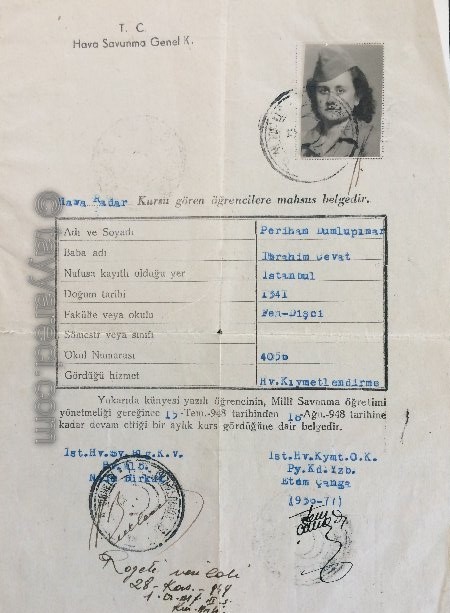 T. C.
Hava Savunma Genel K.
Hava Radar Kursu gören öğrencilere mahsus belgedir.
Adı ve Soyadı Perihan Dumlupınar
Baba adı İbrahim Cevat
Nufusa kayıtlı olduğu yer İstanbul
Doğum tarihi 1341
Fakülte veya okulu Fen-Dişçi
Sömestr veya sınıfı
Okul Numarası 4056
Gördüğü hizmet Hv.Kıymetlendirme
Yukarıda künyesi yazılı öğrencinin, Millî Savunma öğretimi
yönetmeliği gereğince 15-Tem.-948 tarihinden 16-Ağu.-948 tarihine
kadar devam ettiği bir aylık kurs gördüğüne dair belgedir.
İst.Hv. K.V.
İst.Hv.Kymt.O.K.
Py.Kd.Yzb.
Etem Çanga
Rozeti verildi
28-Kas.-949
© tayyareci.com